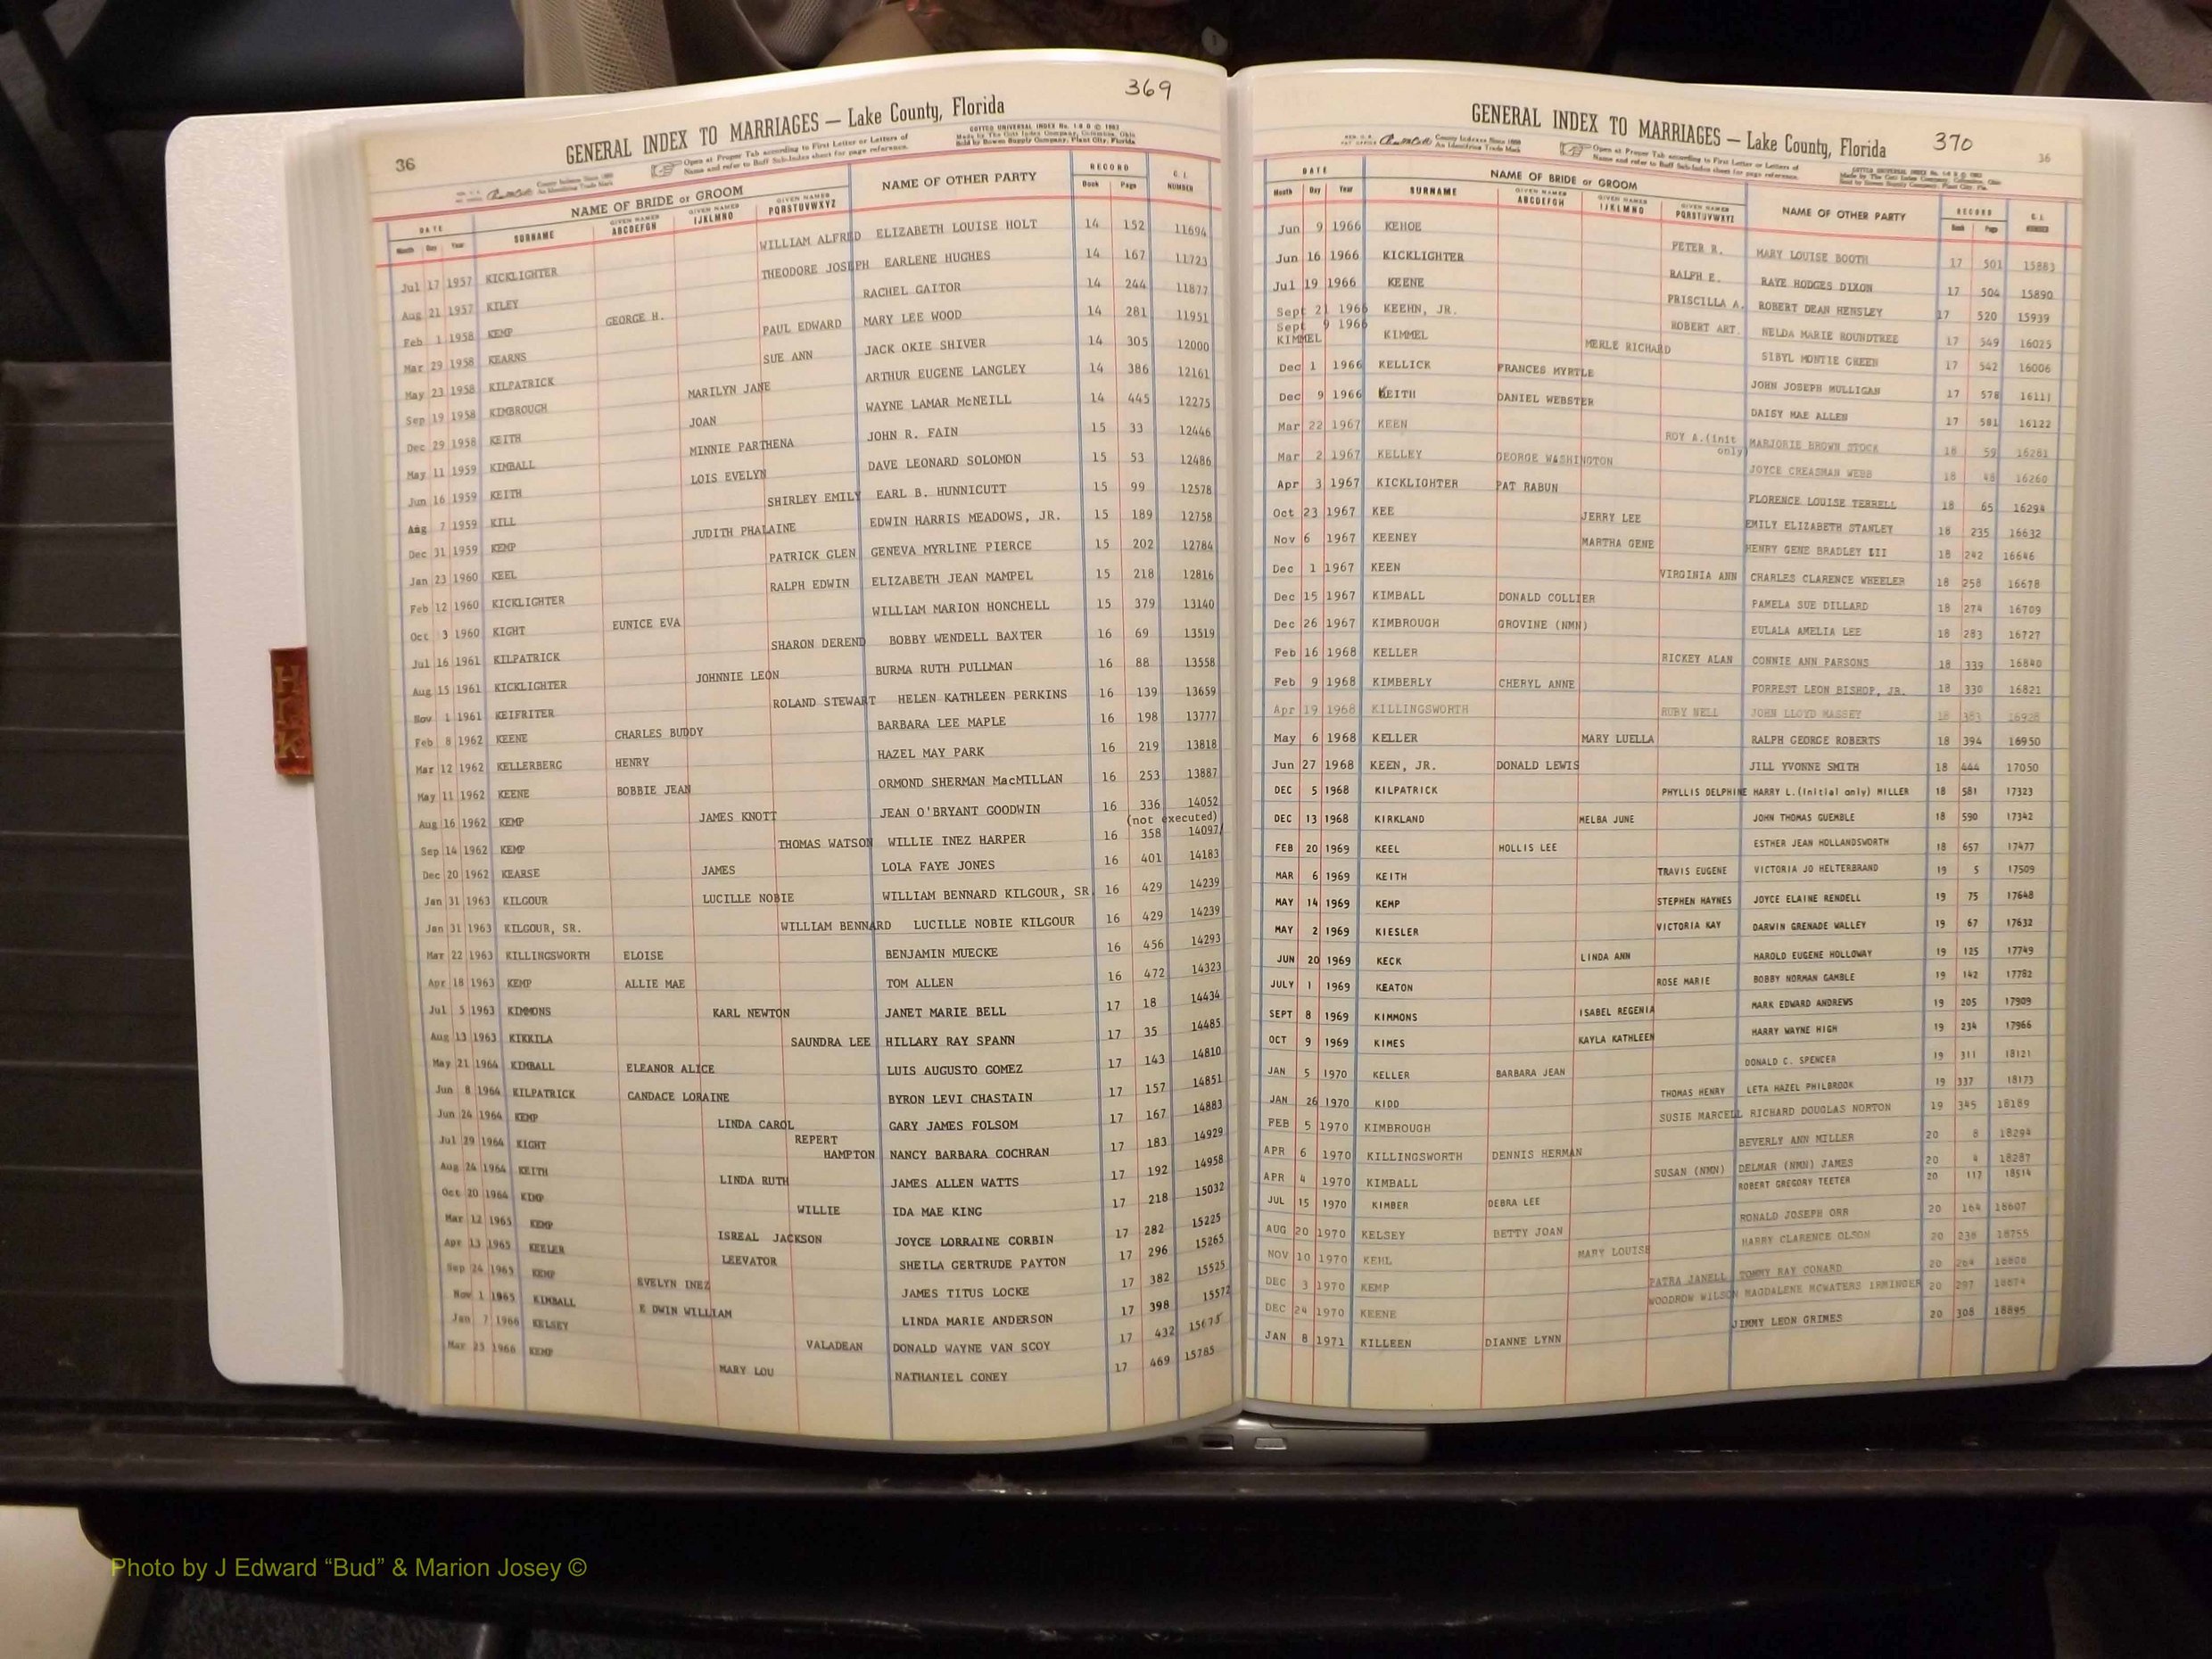 369
36
GENERAL INDEX TO MARRIAGES — Lake County, Florida
County Indexes Since 1888
An Identifying Trade Mark
Open at Proper Tab according to First Letter or Letters of
Name and refer to Buff Sub-Index sheet for page reference.
Made by The Cott Index Company, Columbus, Ohio
Sold by Bowen Supply Company, Plant City, Florida
DATE NAME OF BRIDE or GROOM NAME OF OTHER PARTY RECORD
Month Day Year SURNAME GIVEN NAMES ABCDEFGH GIVEN NAMES IJKLMNO GIVEN NAMES PQRSTUVWXYZ Book Page NUMBER
Jul 17 1957 KICKLIGHTER WILLIAM ALFRED ELIZABETH LOUISE HOLT 14 152 11694
Aug 21 1957 KILEY THEODORE JOSEPH EARLENE HUGHES 14 167 11723
Feb 1 1958 KEMP GEORGE H. RACHEL GAITOR 14 244 11877
Mar 29 1958 KEARNS PAUL EDWARD MARY LEE WOOD 14 281 11951
May 23 1958 KILPATRICK SUE ANN JACK OKIE SHIVER 14 305 12000
Sep 19 1958 KIMBROUGH MARILYN JANE ARTHUR EUGENE LANGLEY 14 386 12161
Dec 29 1958 KEITH JOAN WAYNE LAMAR McNEILL 14 445 12275
May 11 1959 KIMBALL MINNIE PARTHENA JOHN R. FAIN 15 33 12446
Jun 16 1959 KEITH LOIS EVELYN DAVE LEONARD SOLOMON 15 53 12486
Aug 7 1959 KILL SHIRLEY EMILY EARL B. HUNNICUTT 15 99 12578
Dec 31 1959 KEMP JUDITH PHALAINE EDWIN HARRIS MEADOWS, JR. 15 189 12758
Jan 23 1960 KEEL PATRICK GLEN GENEVA MYRLINE PIERCE 15 202 12784
Feb 12 1960 KICKLIGHTER RALPH EDWIN ELIZABETH JEAN MAMPEL 15 218 12816
Oct 3 1960 KIGHT EUNICE EVA WILLIAM MARION HONCHELL 15 379 13140
Jul 16 1961 KILPATRICK SHARON DEREND BOBBY WENDELL BAXTER 16 69 13519
Aug 15 1961 KICKLIGHTER JOHNNIE LEON BURMA RUTH PULLMAN 16 88 13558
Nov 1 1961 KEIFRITER ROLAND STEWART HELEN KATHLEEN PERKINS 16 139 13659
Feb 8 1962 KEENE CHARLES BUDDY BARBARA LEE MAPLE 16 198 13777
Mar 12 1962 KELLERBERG HENRY HAZEL MAY PARK 16 219 13818
May 11 1962 KEENE BOBBIE JEAN ORMOND SHERMAN MacMILLAN 16 253 13887
Aug 16 1962 KEMP JAMES KNOTT JEAN O'BRYANT GOODWIN 16 336 14052
(not executed)
Sep 14 1962 KEMP THOMAS WATSON WILLIE INEZ HARPER 16 358 14097
Dec 20 1962 KEARSE JAMES LOLA FAYE JONES 16 401 14183
Jan 31 1963 KILGOUR LUCILLE NOBIE WILLIAM BENNARD KILGOUR, SR 16 429 14239
Jan 31 1963 KILGOUR, SR. WILLIAM BENNARD LUCILLE NOBIE KILGOUR 16 429 14239
Mar 22 1963 KILLINGSWORTH ELOISE BENJAMIN MUECKE 16 456 14293
Apr 18 1963 KEMP ALLIE MAE TOM ALLEN 16 472 14323
Jul 5 1963 KIMMONS KARL NEWTON JANET MARIE BELL 17 18 14434
Aug 13 1963 KIKKILA SAUNDRA LEE HILLARY RAY SPANN 17 35 14485
May 21 1964 KIMBALL ELEANOR ALICE LUIS AUGUSTO GOMEZ 17 143 14810
Jun 8 1964 KILPATRICK CANDACE LORAINE BYRON LEVI CHASTAIN 17 157 14851
Jun 24 1964 KEMP LINDA CAROL GARY JAMES FOLSOM 17 167 14883
Jul 29 1964 KIGHT REPERT
HAMPTON NANCY BARBARA COCHRAN 17 183 14929
Aug 24 1964 KEITH LINDA RUTH JAMES ALLEN WATTS 17 192 14958
Oct 20 1964 KEMP WILLIE IDA MAE KING 17 218 15032
Mar 12 1965 KEMP ISREAL JACKSON JOYCE LORRAINE CORBIN 17 282 15225
Apr 13 1965 KEELER LEEVATOR SHEILA GERTRUDE PAYTON 17 296 15265
Sep 24 1965 KEMP EVELYN INEZ JAMES TITUS LOCKE 17 382 15525
Nov 1 1965 KIMBALL E DWIN WILLIAM LINDA MARIE ANDERSON 17 398 15572
Jan 7 1966 KELSEY VALADEAN DONALD WAYNE VAN SCOY 17 432 15675
Mar 25 1966 KEMP MARY LOU NATHANIEL CONEY 17 469 15785
370
36
GENERAL INDEX TO MARRIAGES — Lake County, Florida
County Indexes Since 1888
An Identifying Trade Mark
Open at Proper Tab according to First Letter or Letters of
Name and refer to Buff Sub-Index sheet for page reference.
DATE NAME OF BRIDE or GROOM NAME OF OTHER PARTY RECORD
Month Day Year SURNAME GIVEN NAMES ABCDEFGH GIVEN NAMES IJKLMNO GIVEN NAMES PQRSTUVWXYZ Book Page NUMBER
Jun 9 1966 KEHOE PETER R. MARY LOUISE BOOTH 17 501 15883
Jun 16 1966 KICKLIGHTER RALPH E. RAYE HODGES DIXON 17 504 15890
Jul 19 1966 KEENE PRISCILLA A. ROBERT DEAN HENSLEY 17 520 15939
Sept 21 1966 KEEHN, JR. ROBERT ART. NELDA MARIE ROUNDTREE 17 549 16025
Sept 9 1966 KIMMEL KIMMEL MERLE RICHARD SIBYL MONTIE GREEN 17 542 16006
Dec 1 1966 KELLICK FRANCES MYRTLE JOHN JOSEPH MULLIGAN 17 578 16111
Dec 9 1966 KEITH DANIEL WEBSTER DAISY MAE ALLEN 17 581 16122
Mar 22 1967 KEEN ROY A.(init only) MARJORIE BROWN STOCK 18 59 16281
Mar 2 1967 KELLEY GEORGE WASHINGTON JOYCE CREASMAN WEBB 18 48 16260
Apr 3 1967 KICKLIGHTER PAT RABUN FLORENCE LOUISE TERRELL 18 65 16294
Oct 23 1967 KEE JERRY LEE EMILY ELIZABETH STANLEY 18 235 16632
Nov 6 1967 KEENEY MARTHA GENE HENRY GENE BRADLEY III 18 242 16646
Dec 1 1967 KEEN VIRGINIA ANN CHARLES CLARENCE WHEELER 18 258 16678
Dec 15 1967 KIMBALL DONALD COLLIER PAMELA SUE DILLARD 18 274 16709
Dec 26 1967 KIMBROUGH GROVINE (NMN) EULALA AMELIA LEE 18 283 16727
Feb 16 1968 KELLER RICKEY ALAN CONNIE ANN PARSONS 18 339 16840
Feb 9 1968 KIMBERLY CHERYL ANNE FORREST LEON BISHOP, JR. 18 330 16821
Apr 19 1968 KILLINGSWORTH RUBY NELL JOHN LLOYD MASSEY 18 383 16928
May 6 1968 KELLER MARY LUELLA RALPH GEORGE ROBERTS 18 394 16950
Jun 27 1968 KEEN, JR. DONALD LEWIS JILL YVONNE SMITH 18 444 17050
DEC 5 1968 KILPATRICK PHYLLIS DELPHINE HARRY L.(Initial only) MILLER 18 581 17323
DEC 13 1968 KIRKLAND MELBA JUNE JOHN THOMAS GUEMBLE 18 590 17342
FEB 20 1969 KEEL HOLLIS LEE ESTHER JEAN HOLLANDSWORTH 18 657 17477
MAR 6 1969 KEITH TRAVIS EUGENE VICTORIA JO HELTERBRAND 19 5 17509
MAY 14 1969 KEMP STEPHEN HAYNES JOYCE ELAINE RENDELL 19 75 17648
MAY 2 1969 KIESLER VICTORIA KAY DARWIN GRENADE WALLEY 19 67 17632
JUN 20 1969 KECK LINDA ANN HAROLD EUGENE HOLLOWAY 19 125 17749
JULY 1 1969 KEATON ROSE MARIE BOBBY NORMAN GAMBLE 19 142 17782
SEPT 8 1969 KIMMONS ISABEL REGENIA MARK EDWARD ANDREWS 19 205 17909
OCT 9 1969 KIMES KAYLA KATHLEEN HARRY WAYNE HIGH 19 234 17966
JAN 5 1970 KELLER BARBARA JEAN DONALD C. SPENCER 19 311 18121
JAN 26 1970 KIDD THOMAS HENRY LETA HAZEL PHILBROOK 19 337 18173
FEB 5 1970 KIMBROUGH SUSIE MARCELL RICHARD DOUGLAS NORTON 19 345 18189
APR 6 1970 KILLINGSWORTH DENNIS HERMAN BEVERLY ANN MILLER 20 8 18294
APR 4 1970 KIMBALL SUSAN (NMN) DELMAR (NMN) JAMES 20 4 18287
JUL 15 1970 KIMBER DEBRA LEE ROBERT GREGORY TEETER 20 117 18514
AUG 20 1970 KELSEY BETTY JOAN RONALD JOSEPH ORR 20 164 18607
NOV 10 1970 KEHL MARY LOUISE HARRY CLARENCE OLSON 20 238 18755
DEC 3 1970 KEMP PATRA JANELL TOMMY RAY CONARD 20 264 18808
DEC 24 1970 KEENE WOODROW WILSON MAGDALENE MCWATERS IRMINGER 20 297 18874
JAN 8 1971 KILLEEN DIANNE LYNN JIMMY LEON GRIMES 20 308 18895
Photo by J Edward “Bud” & Marion Josey ©